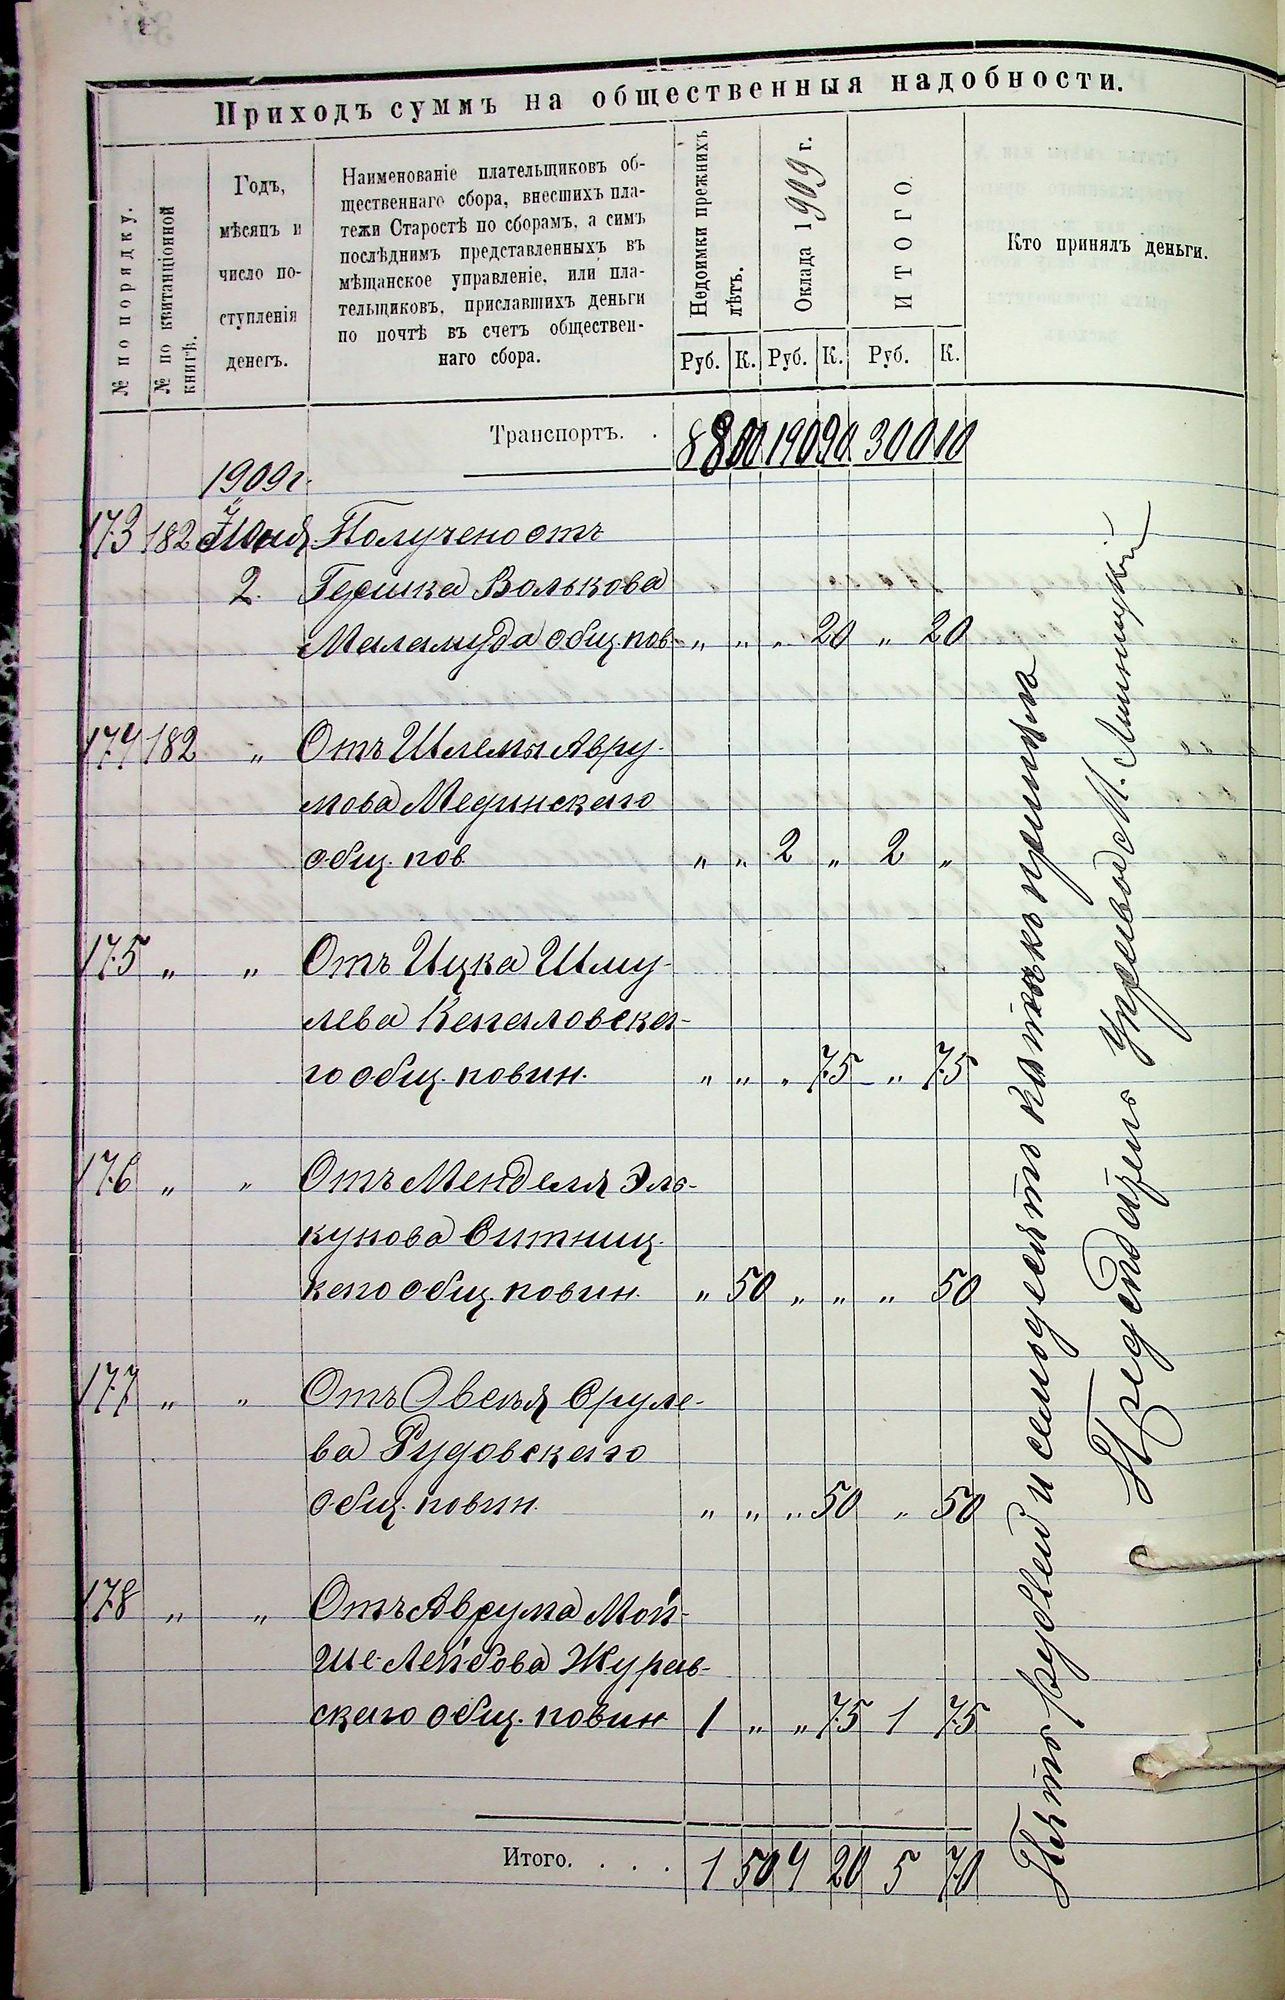 Приходъ суммъ на общественныя надобности.
№ по порядку.
№ по квитанціонной книгѣ.
Годъ,
мѣсяцъ и
число по-
ступленія
денегъ.
Наименованіе плательщиковъ об-
щественнаго сбора, внесшихъ пла-
тежи Старостѣ по сборамъ, а симъ
послѣднимъ представленныхъ въ
мѣщанское управленіе, или пла-
тельщиковъ, приславшихъ деньги
по почтѣ въ счетъ обществен-
наго сбора.
Недоимки прежнихъ лѣтъ.
Оклада 1909 г.
ИТОГО.
Кто принялъ деньги.
Руб. К. Руб. К. Руб. К.
Транспортъ. . 190 90 300 10
1909 г.
173 182 Іюня Получено отъ
2. Гершка Волькова
Маламуда общ. пов „ „ „ 20 „ 20
174 182 „ Отъ Шлемы Авру-
мова Мединскаго
общ. пов „ „ 2 „ 2 „
175 „ „ Отъ Ицка Шму-
лева
го общ. повин. „ „ „ 75 „ 75
176 „ „ Отъ Менделя Эль-
кунова Ситниц-
каго общ. повин. „ 50 „ „ „ 50
177 „ „ Отъ Овсея Сруле-
ва Рудовскаго
общ. повин. „ „ „ 50 „ 50
178 „ „ Отъ Аврума Мой-
ше-Лейбова Журав-
скаго общ. повин 1 „ „ 75 1 75
Итого. . . . 1 50 4 20 5 70
Пять рублей и семьдесят копѣекъ принялъ
Предсѣдатель Управы